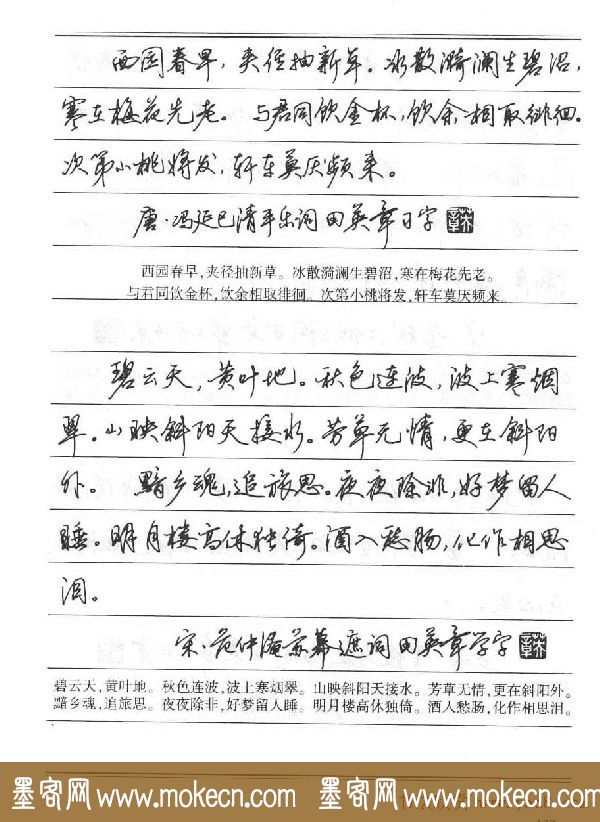 西园春早，夹径抽新草。冰散漪澜生碧沼，
寒在梅花先老。与君同饮金杯，饮余相取徘徊。
次第小桃将发，轩车莫厌频来。
唐·冯延巳清平乐词 田英章习字
西园春早，夹径抽新草。冰散漪澜生碧沼，寒在梅花先老。
与君同饮金杯，饮余相取徘徊。次第小桃将发，轩车莫厌频来。
碧云天，黄叶地。秋色连波，波上寒烟
翠。山映斜阳天接水。芳草无情，更在斜阳
外。黯乡魂，追旅思。夜夜除非，好梦留人
睡。明月楼高休独倚。酒入愁肠，化作相思
泪。
宋·范仲淹苏幕遮词 田英章学字
碧云天，黄叶地。秋色连波，波上寒烟翠。山映斜阳天接水。芳草无情，更在斜阳外。
黯乡魂，追旅思。夜夜除非，好梦留人睡。明月楼高休独倚。酒入愁肠，化作相思泪。
墨客网 www.mokecn.com 墨客网 www.mokecn.com